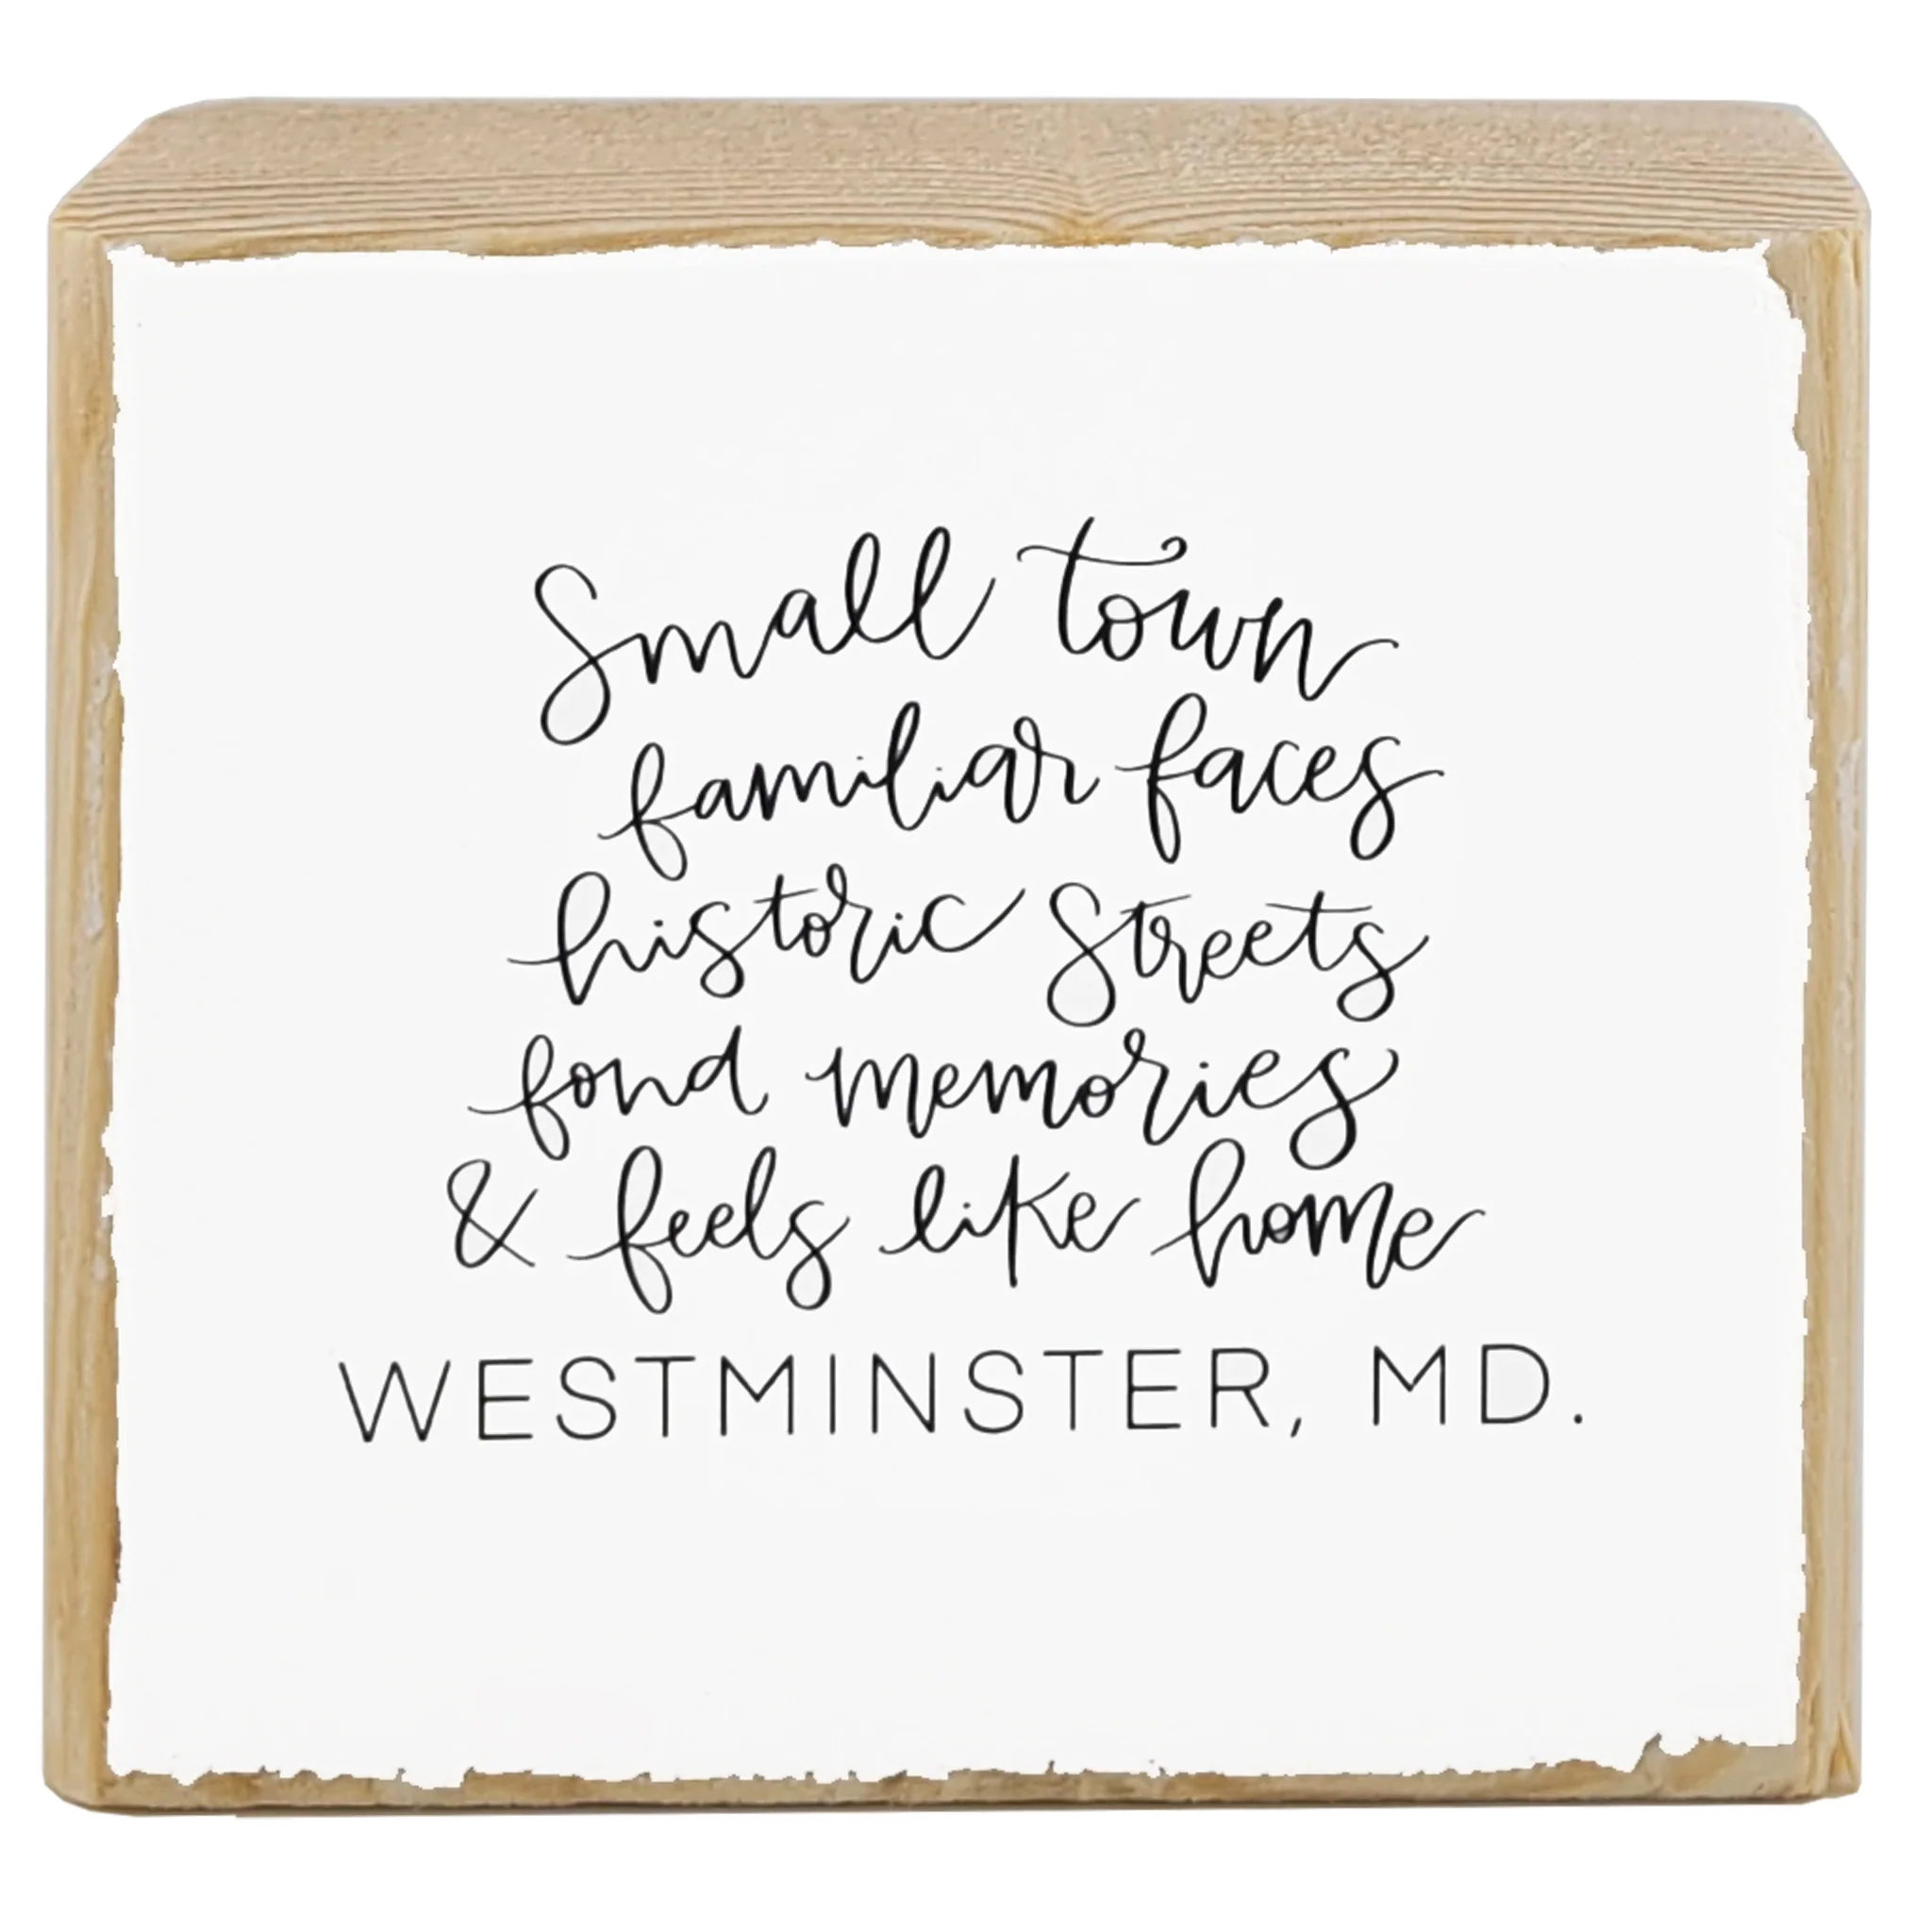 Small town
familiar faces
historic Streets
fond memories
& feels like home
WESTMINSTER, MD.